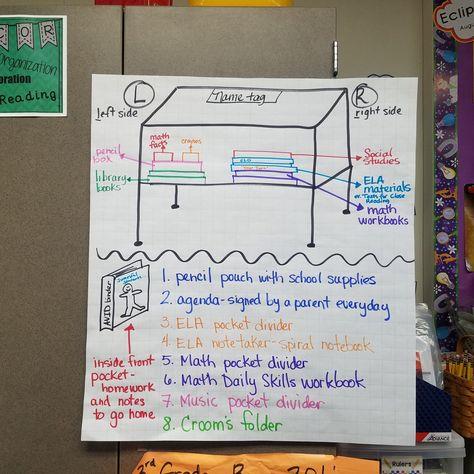 C O R
Organization
Reading
Eclip
L
R
Name tag
left side
right side
math
facts
crayons
pencil
box
library
books
Social
Studies
ELA
ELA
materials
or Texts for Close
Reading
math
workbooks
AVID binder
1. pencil pouch with school supplies
2. agenda-signed by a parent everyday
3. ELA pocket divider
4. ELA note taker-spiral notebook
5. Math pocket divider
6. Math Daily Skills workbook
7. Music pocket divider
8. Croom's folder
inside front
pocket-
homework
and notes
to go home
Rulers